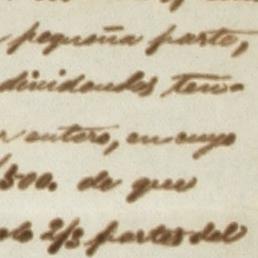 pequeña parte,
dividendos ten-
entero, en cuyo
500. de que
2/3 partes del